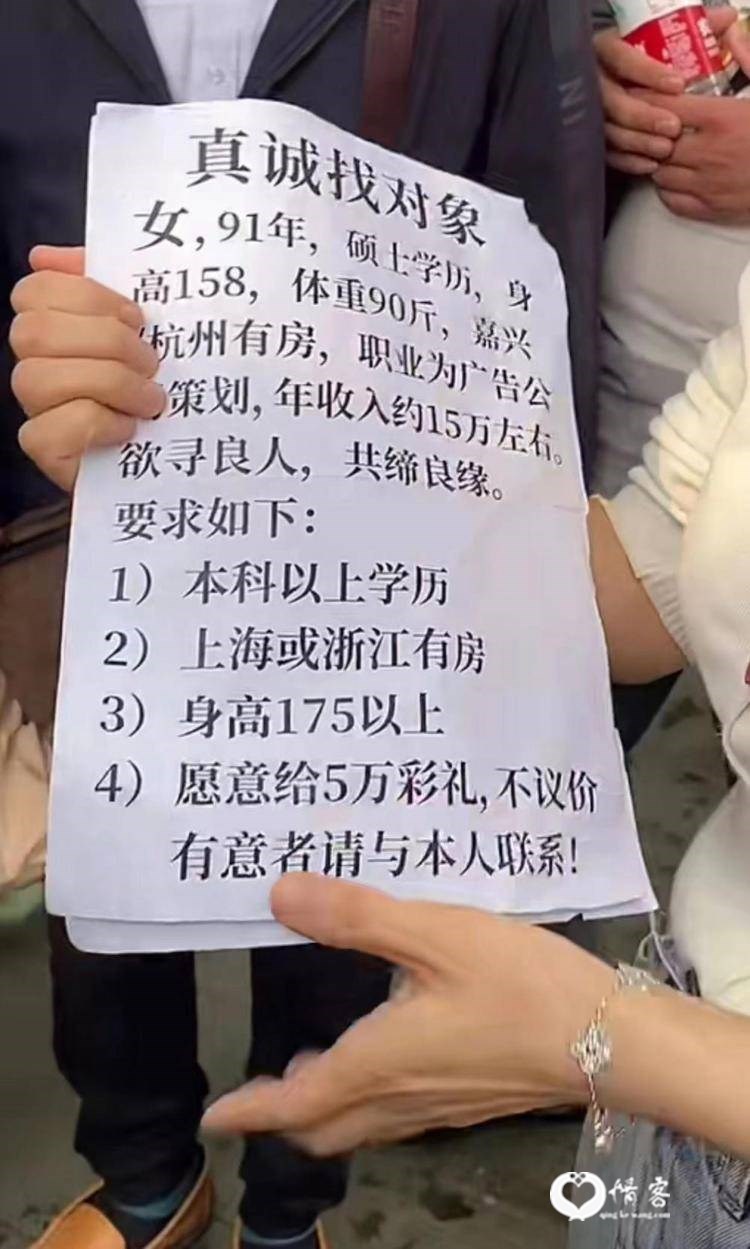 真诚找对象
女,91年,硕士学历,身
高158,体重90斤,嘉兴
杭州有房,职业为广告公
策划,年收入约15万左右。
欲寻良人,共缔良缘。
要求如下:
1)本科以上学历
2)上海或浙江有房
3)身高175以上
4)愿意给5万彩礼,不议价
有意者请与本人联系!
情客
qing ke wang.com